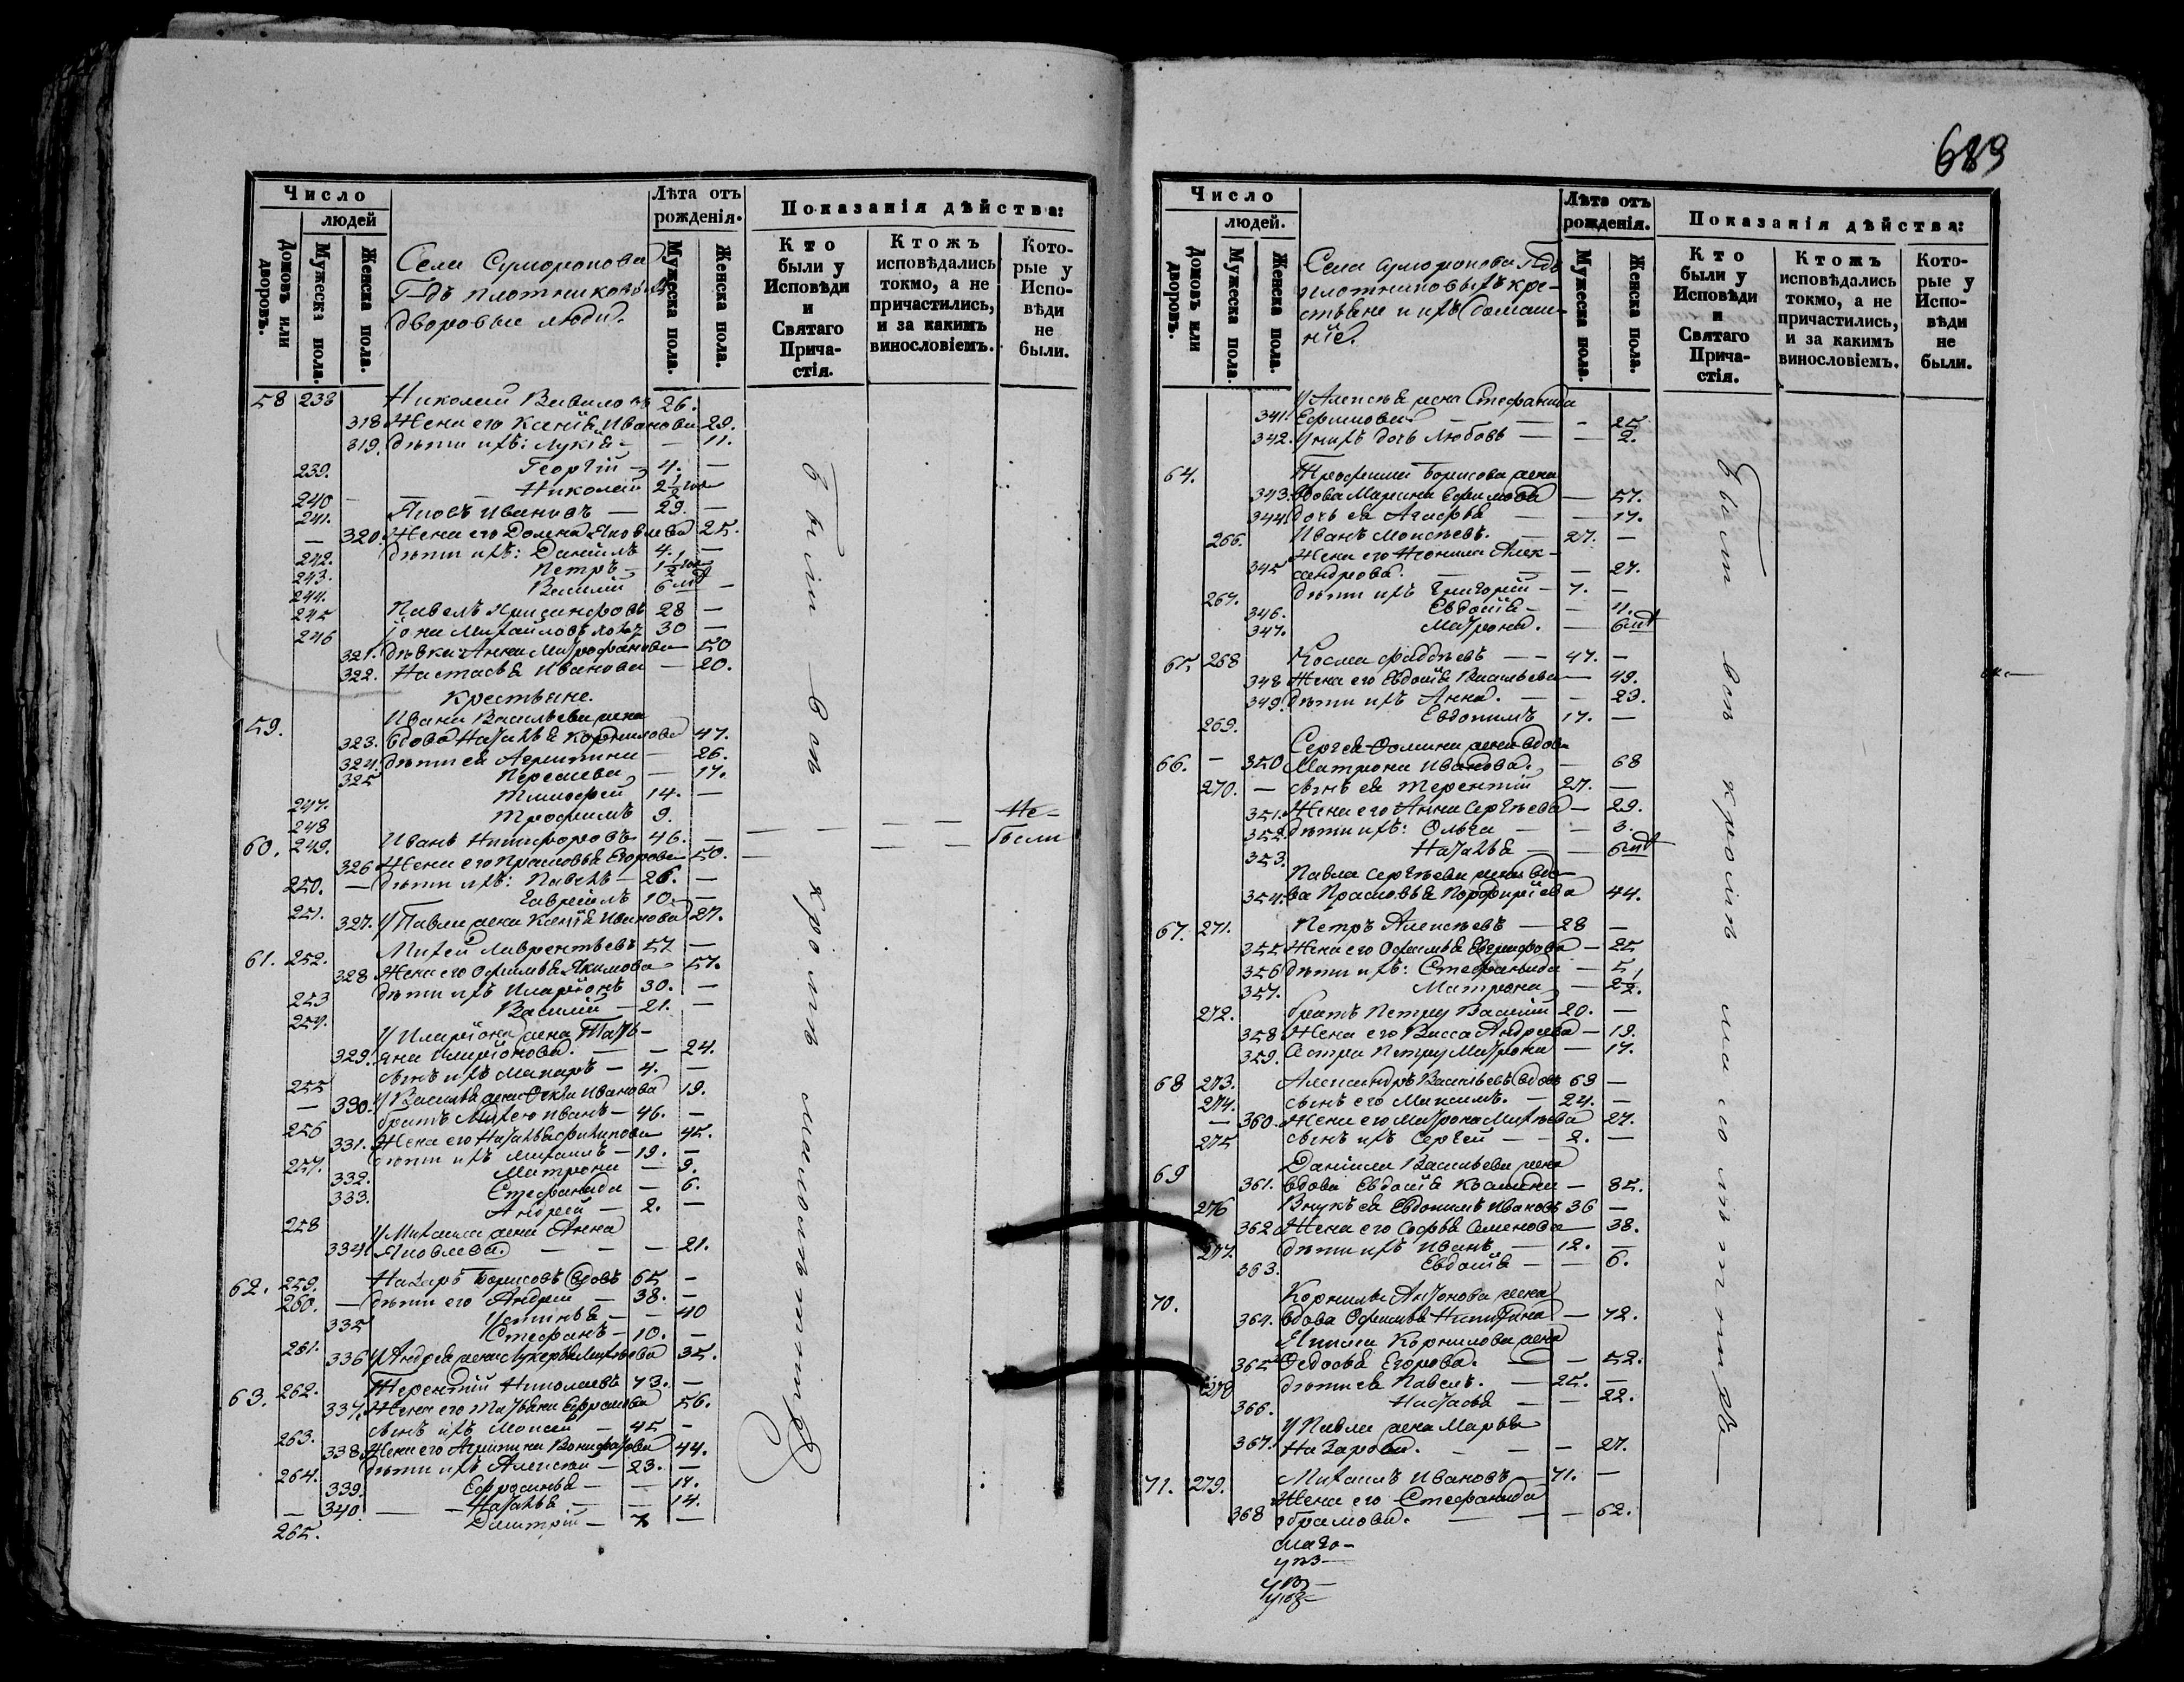 Число
людей
Домовъ или дворовъ.
Мужеска пола.
Женска пола.
Села Суморокова
Г-дъ Плотниковыхъ
дворовые люди.
Лѣта отъ рожденія.
Мужеска пола.
Женска пола.
Показанія дѣйства:
Кто были у Исповѣди и Святаго Причастія.
Ктожъ исповѣдались токмо, а не причастились, и за какимъ винословіемъ.
Которые у Исповѣди не были.
58 238 Николай Вавиловъ 26.
318 Жена его Ксенія Иванова 29.
319. дѣти ихъ: Лукія — 11.
239. Георгій — 4. —
240 Николай 2½ года
241. Яковъ Ивановъ — 29. —
— 320. Жена его Домна Яковлева 25.
242. дѣти ихъ: Даніилъ 4. —
243. Петръ — 1½ года
244. Василій 6 мѣ —
245 Павелъ 28 —
246 Іона Михайловъ 30 —
321. дѣвка Анна Митрофанова 50
322. Настасья Иванова — 20.
Крестьяне.
59. Ивана Васильева жена
323. вдова Наталья Корнилова 47.
324. дѣти ея Агрипина — 26.
325 — 17.
247. Тимофей 14. —
248 Трофимъ 9.
60. 249. Иванъ Никифоровъ 46. — — — — — Не были
326 Жена его Прасковья Егорова 50.
250. — дѣти ихъ: Павелъ — 26. —
251. Гавріилъ 10. —
327. У Павла жена Ксенія Иванова 27.
61. 252. Михей Лаврентьевъ 57 —
328 Жена его Офимья Якимова 57.
253 дѣти ихъ Иларіонъ 30. —
254. Василій — 21. —
У Иларіона жена Татья-
329. на Иларіонова. — — 24.
255 сынъ ихъ Макаръ — 4. —
— 330. У Василья жена Фекла Иванова 19.
256 братъ Михею Иванъ — 46. —
331. Жена его Наталья Филипова 45.
257. дѣти ихъ Михаилъ — 19. —
332. Матрона — 9.
333. Стефанида — 6.
258 Андрей — 2. —
У Михаила жена Анна
334. Яковлева. — — — 21.
62. 259. Назаръ Борисовъ вдовъ 65 —
260. — дѣти его Андрей — 38. —
335 Устинья — — 40
261. Стефанъ — 10. —
336 У Андрея жена Лукерья Михѣева 35.
63. 262. Терентій Николаевъ 73. —
337. Жена его Татьяна Ефремова 56.
263. сынъ ихъ Моисей — 45 —
338. Жена его Агрипина Вонифатова 44.
264. дѣти ихъ Алексѣй — 23. —
339. Ефросинья — — 17.
— 340. — — Наталья — — 14.
265. Димитрій — 7 —
Были вси кромѣ малолѣтнихъ
689
Число
людей.
Домовъ или дворовъ.
Мужеска пола.
Женска пола.
Села Суморокова Г-дъ
Плотниковыхъ кре-
стьяне и ихъ домаш-
ніе.
Лѣта отъ рожденія.
Мужеска пола.
Женска пола.
Показанія дѣйства:
Кто были у Исповѣди и Святаго Причастія.
Ктожъ исповѣдались токмо, а не причастились, и за какимъ винословіемъ.
Которые у Исповѣди не были.
У Алексѣя жена Стефанида
341. Ефимова — — — 25
342. У нихъ дочь Любовь — — 2.
64. Трофима Борисова жена
343. вдова Марина Ефимова — 57.
344. дочь ея Агафья — — 17.
266. Иванъ Моисеевъ. — 27. —
Жена его Неонила Алек-
345 сандрова. — — — 27.
267. дѣти ихъ Григорій — 7. —
346. Евдокія — — 4.
347. Матрона. — 6 мѣ
65. 268 Косма Фаддѣевъ — — 47. —
348 Жена его Евдокія Васильева — 49.
349. дѣти ихъ Анна. — — 23.
269. Евдокимъ 17. —
Сергѣя Фомина жена вдова
66. — 350 Матрона Иванова. — 68
270. — сынъ ея Терентій 27. —
351. Жена его Анна Сергѣева — 29.
352. дѣти ихъ: Ольга — — 3.
353. Наталья — — 6 мѣ
Павла Сергѣева жена вдо-
354. ва Прасковья Порфирієва 44.
67. 271. Петръ Алексѣевъ — 28 —
355 Жена его Офимья Евграфова — 25
356 дѣти ихъ: Стефанида — 5
357. Матрона — 2½.
272. братъ Петру Василій 20. —
358 Жена его Васса Андреева — 19.
359. сестра Петру Матрона — 17.
68 273. Александръ Васильевъ вдовъ 69 —
274. сынъ его Максимъ. — 24. —
— 360. Жена его Матрона Михѣева 27.
275 сынъ ихъ Сергѣй — — 2. —
69 Даніила Васильева жена
361. вдова Евдокія Космина — 85.
276 Внукъ ея Евдокимъ Ивановъ 36 —
362 Жена его Софья Семенова — 38.
277. дѣти ихъ Иванъ — 12. —
363. Евдокія — — 6.
70. Корнилы Антонова жена
364. вдова Офимья Никитина — 72.
Якима Корнилова жена
365 Федосья Егорова. — — 52.
278 дѣти ея Павелъ. — 25. —
366. Настасья — — 22.
У Павла жена Марья
367. Назарова. — — — 27.
71. 279. Михаилъ Ивановъ — 71. —
Жена его Стефанида
368 Абрамова. — — — 62.
Были вси кромѣ малолѣтнихъ